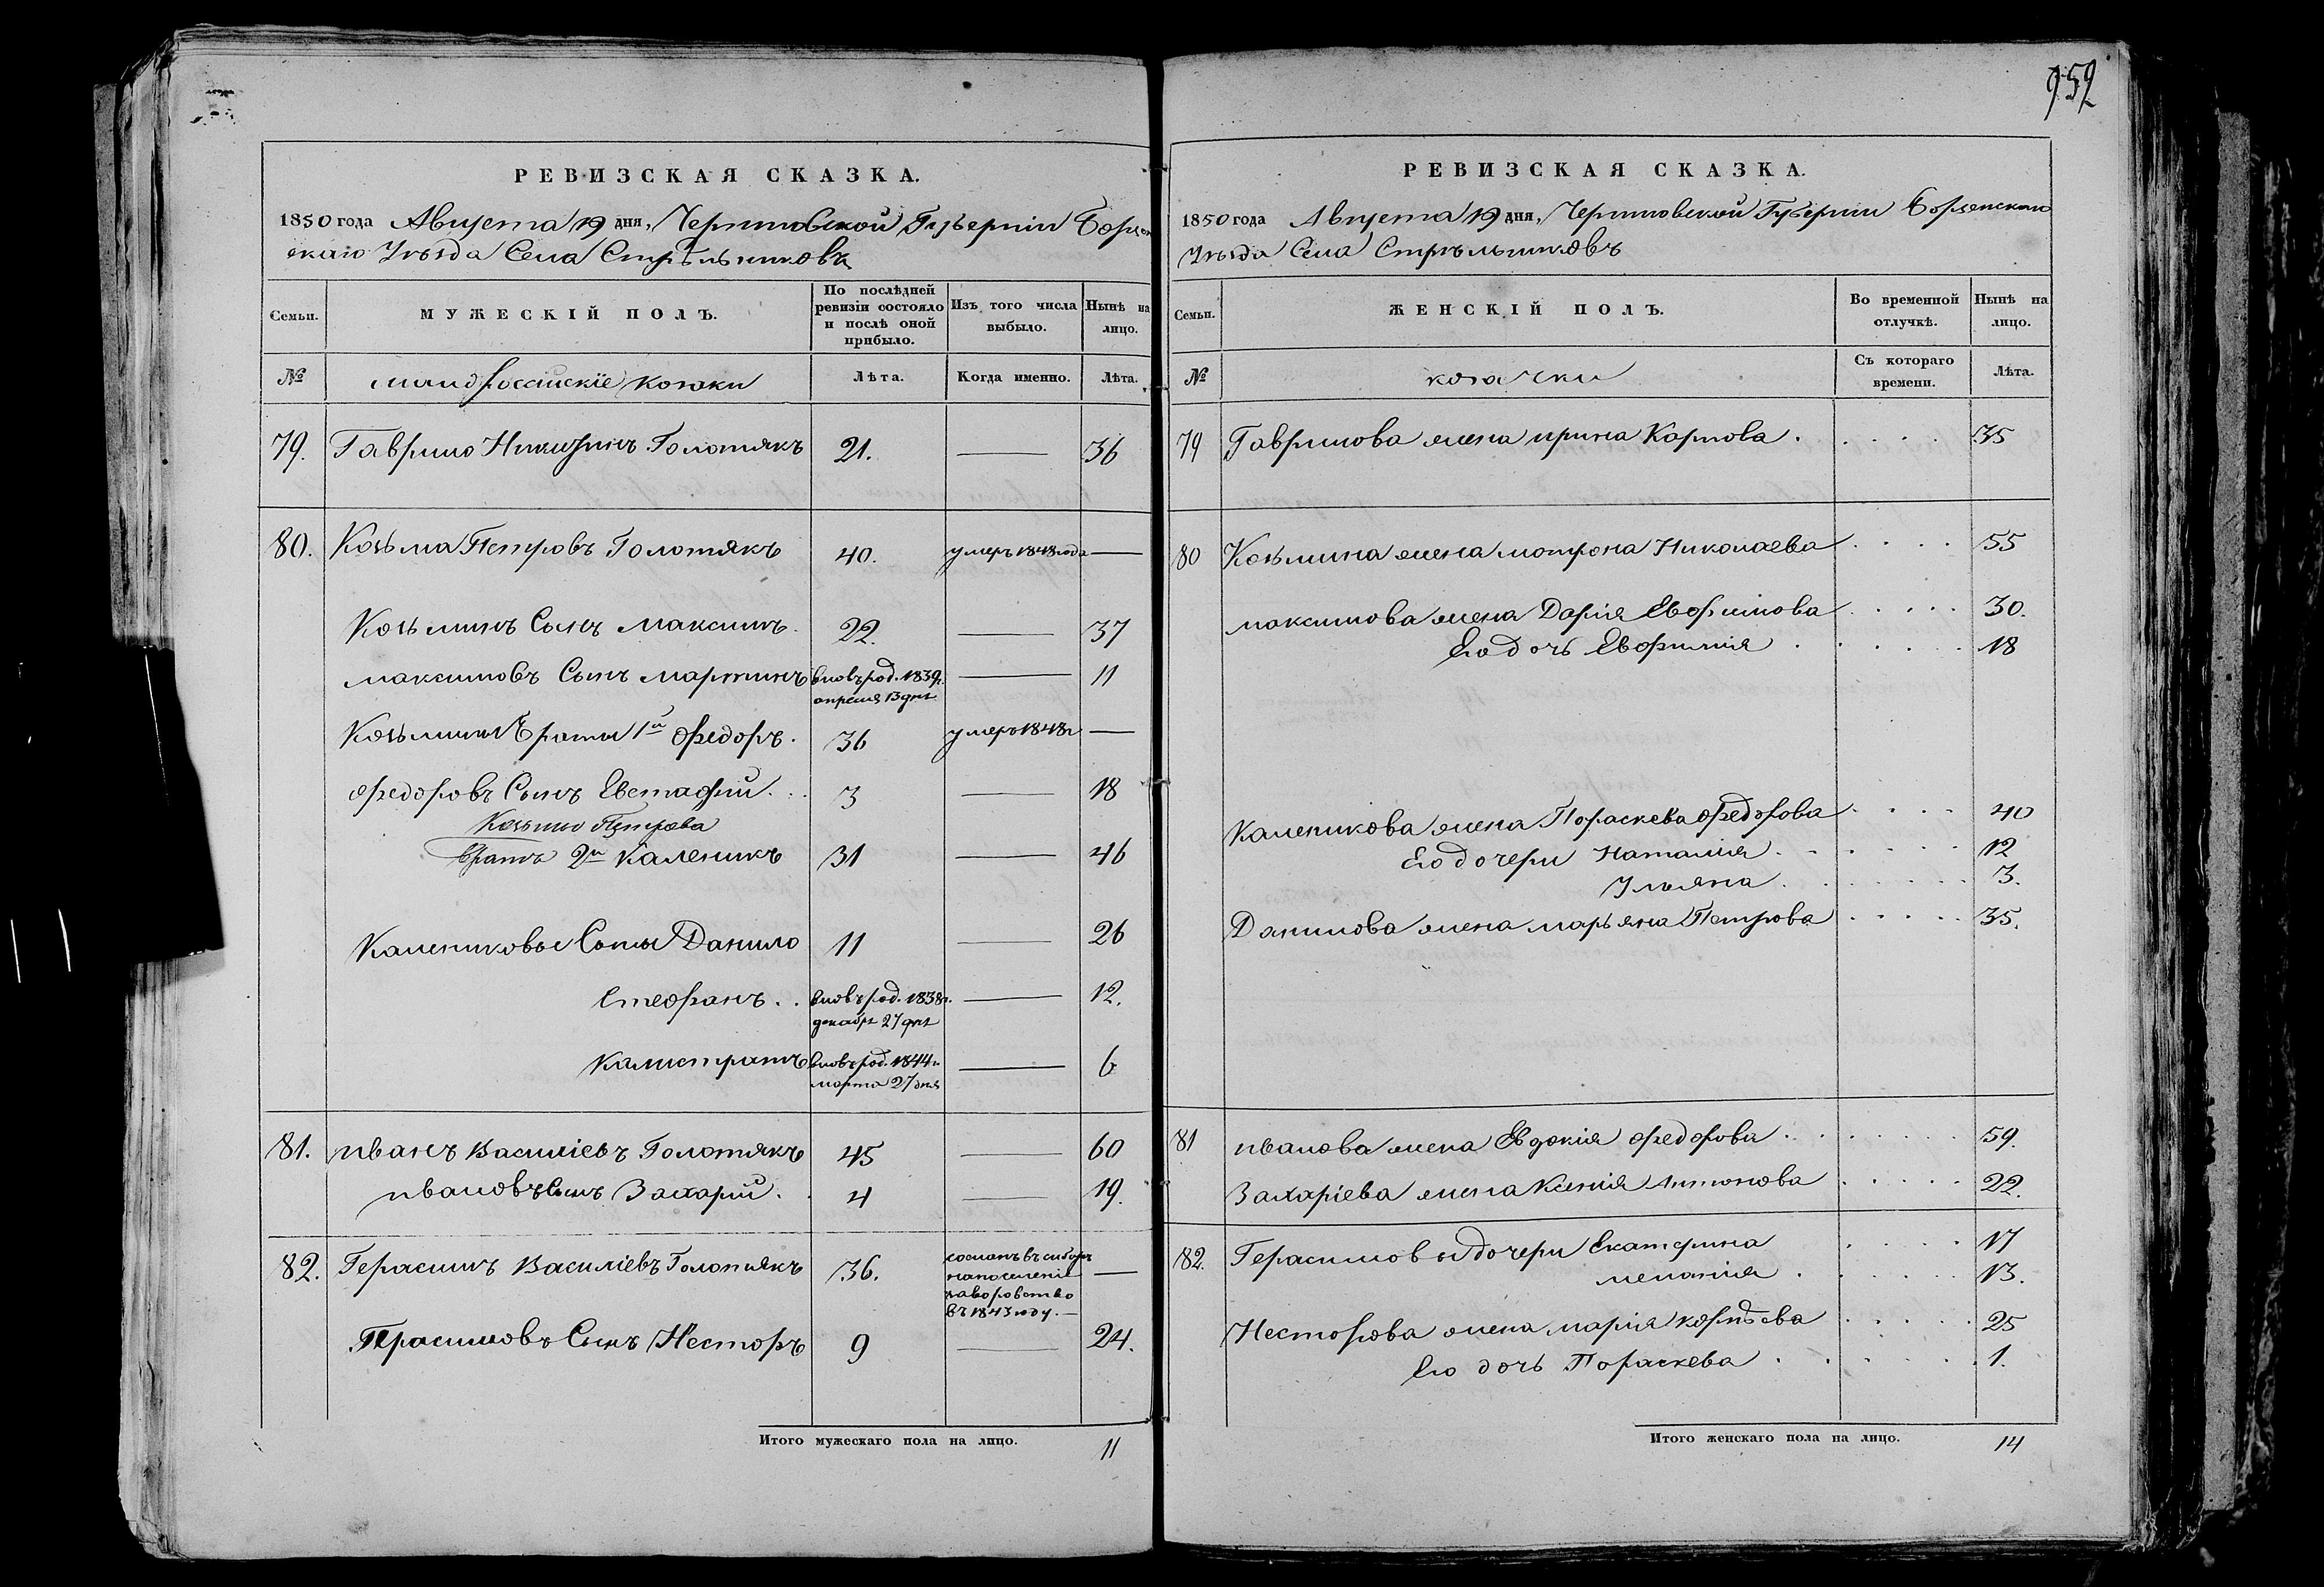 952
РЕВИЗСКАЯ СКАЗКА.
1850 года Августа 19 дня, Черниговской Губерніи Борзен
скаго Уѣзда Села Стрѣльниковъ
Семьи. МУЖЕСКІЙ ПОЛЪ. По послѣдней ревизіи состояло и послѣ оной прибыло. Изъ того числа выбыло. Нынѣ на лицо.
№ малороссійскіе козаки Лѣта. Когда именно. Лѣта.
79. Гаврило Голотякъ 21. — 36
80. Козьма Петровъ Голотякъ 40. умеръ 1848 года —
Козьминъ Сынъ Максимъ. 22. — 37
Максимовъ Сынъ Мартинъ вновь род. 1839г. — 11
апреля 13 дня
Козьмины братья 1й Федоръ. 36 умеръ 1848г —
Федоровъ Сынъ Евстафій. . . 3 — 18
Козьмы Петрова
братъ 2й Каленикъ 31 — 46
Калениковы Сыны Данило 11 — 26
Стефанъ. . вновь род. 1838г. — 12.
декабря 27 дня
Калистратъ вновь род. 1844г. — 6
марта 27 дня
81. Иванъ Василіевъ Голотякъ 45 — 60
Ивановъ Сынъ Захарій. 4 — 19.
82. Герасимъ Василіевъ Голотякъ 36. сосланъ въ сибирь —
на поселеніе
за воровство
въ 1843 году. —
Герасимовъ Сынъ Несторъ 9 — 24.
Итого мужескаго пола на лицо. 11
РЕВИЗСКАЯ СКАЗКА.
1850 года Августа 19 дня, Черниговской Губерніи Борзенскаго
Уѣзда Села Стрѣльниковъ
Семьи. ЖЕНСКІЙ ПОЛЪ. Во временной отлучкѣ. Нынѣ на лицо.
№ козачки Съ котораго времени. Лѣта.
79 Гаврилова жена Ирина Карпова . . . . . 35
80 Козьмина жена Мотрона Николаева . . . . 55
Максимова жена Дарія Евфимова . . . . 30.
Его дочь Евфимія . . . . . . 18
Каленикова жена Параскева Федорова . . . . 40
Его дочери Наталія . . . . . . 12
Ульяна . . . . . . 3.
Данилова жена Марьяна Петрова . . . . . 35.
81 Иванова жена Евдокія Федорова . . . . . . . 59.
Захаріева жена Ксенія Антонова . . . . . 22.
82. Герасимовы дочери Екатерина . . . . 17
Меланія . . . . . . 13.
Несторова жена Марія Корнѣева . . . . . 25
Его дочь Параскева . . . . . . 1.
Итого женскаго пола на лицо. 14